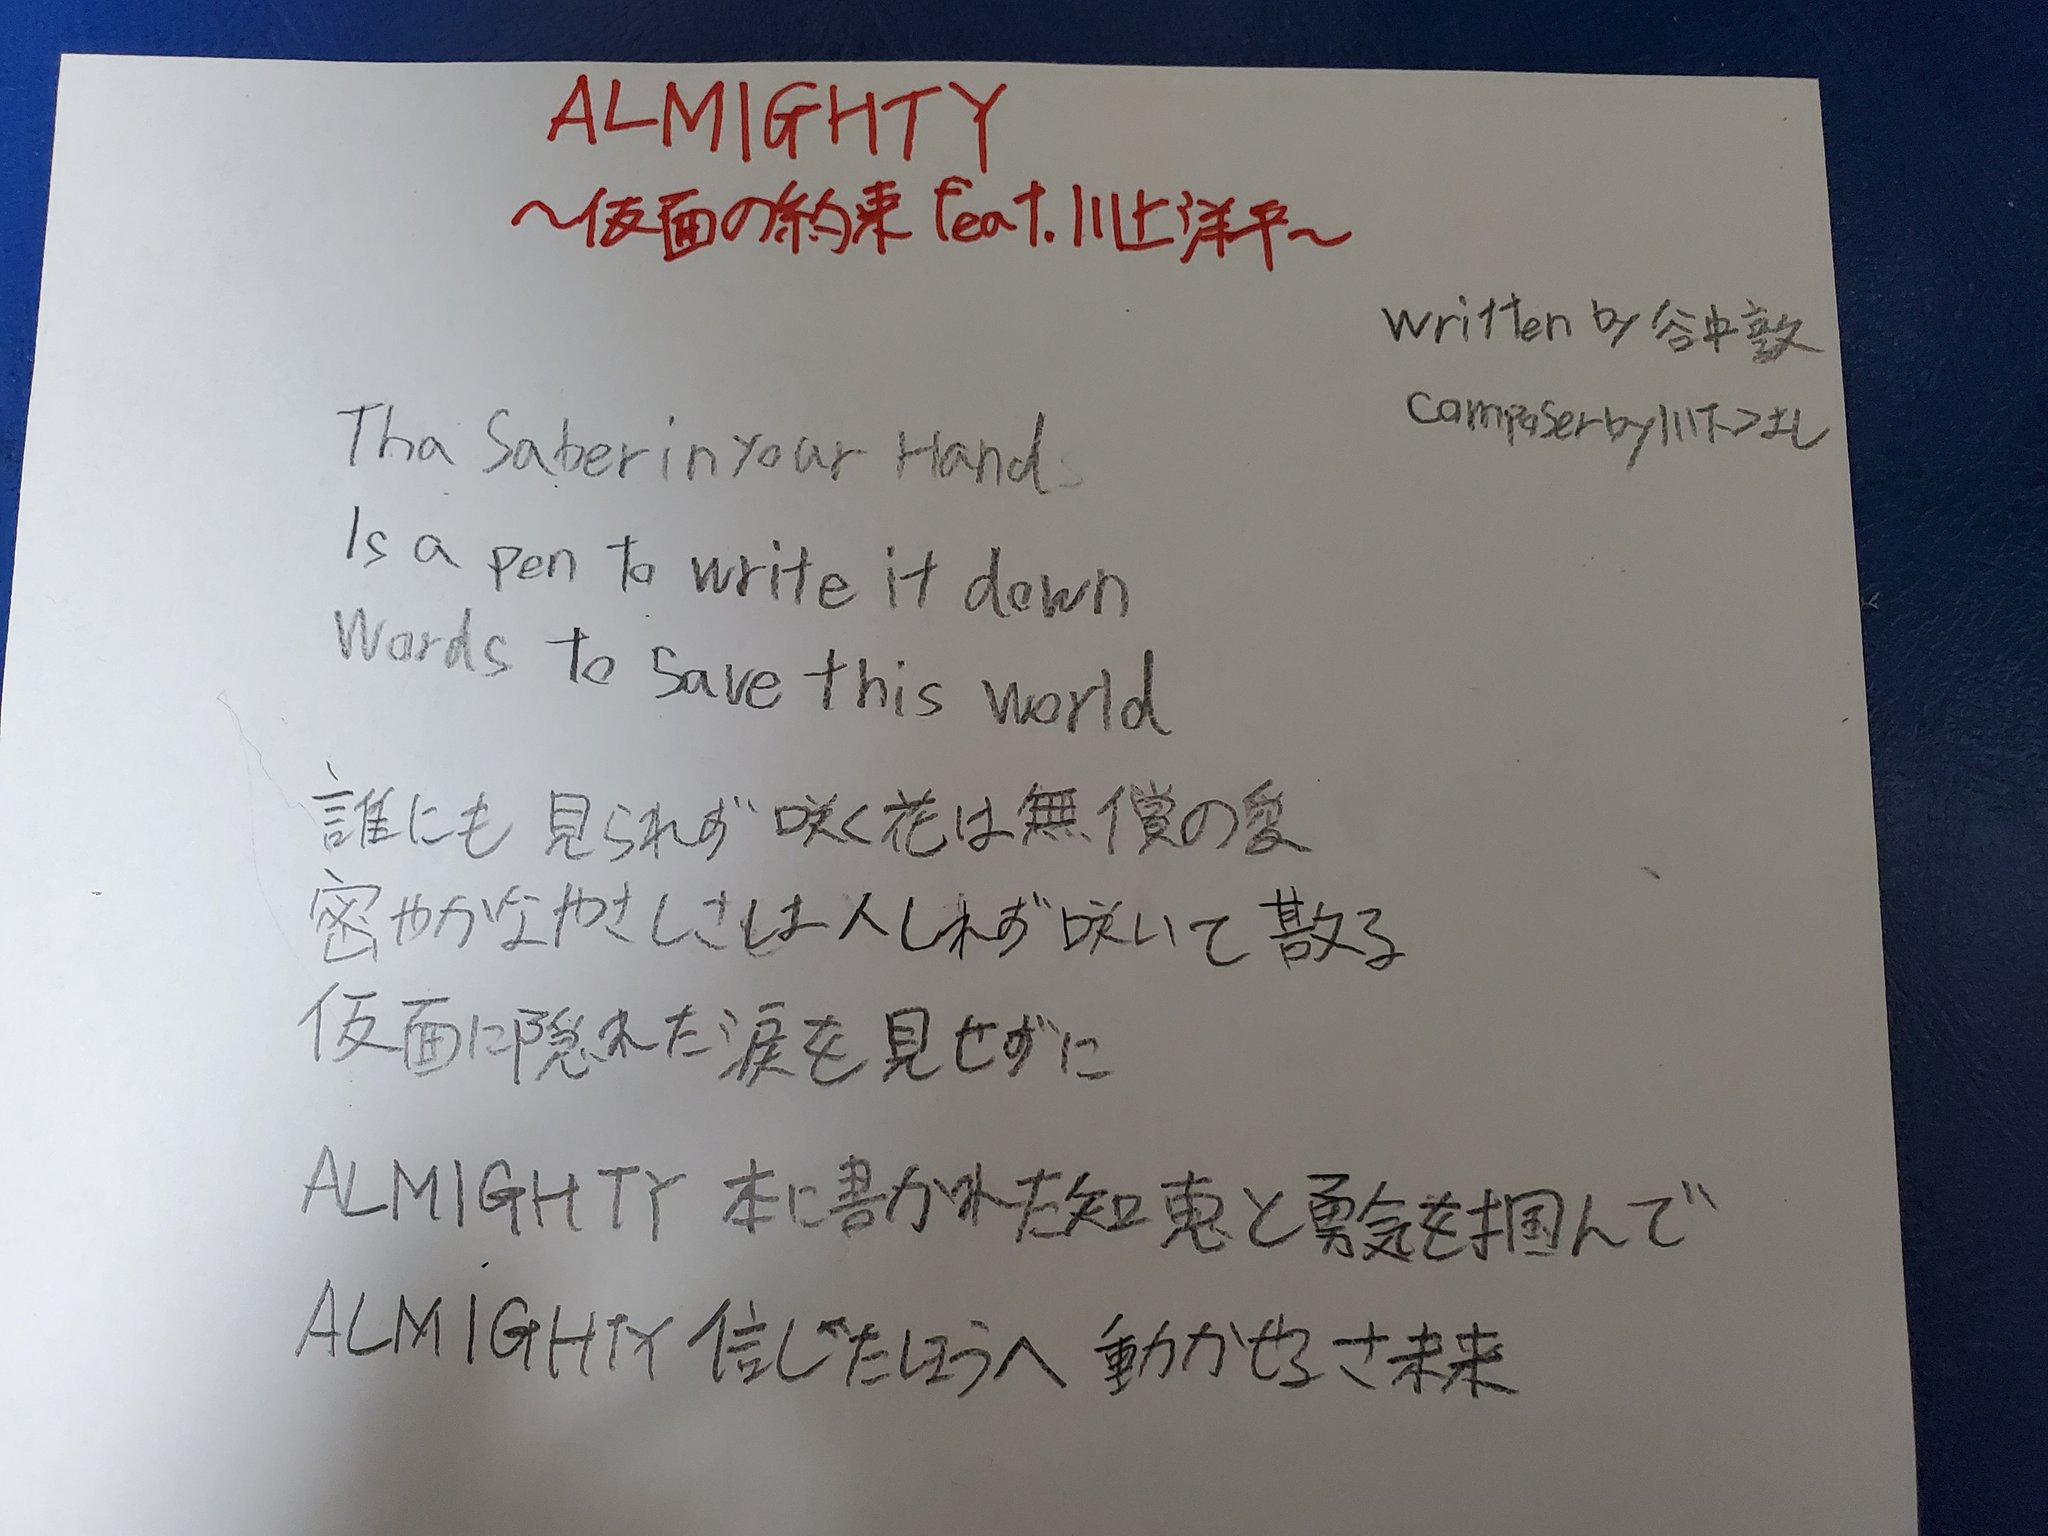 ALMIGHTY
～仮面の約束 feat.川上洋平～
written by 谷中敦
composer by 川下つよし
Tha Saber in your Hands
Is a pen to write it down
Words to save this world
誰にも 見られず 咲く花は無償の愛
密やかなやさしさは人しれず咲いて散る
仮面に隠れた涙を見せずに
ALMIGHTY 本に書かれた知恵と勇気を掴んで
ALMIGHTY 信じたほうへ 動かせるさ未来